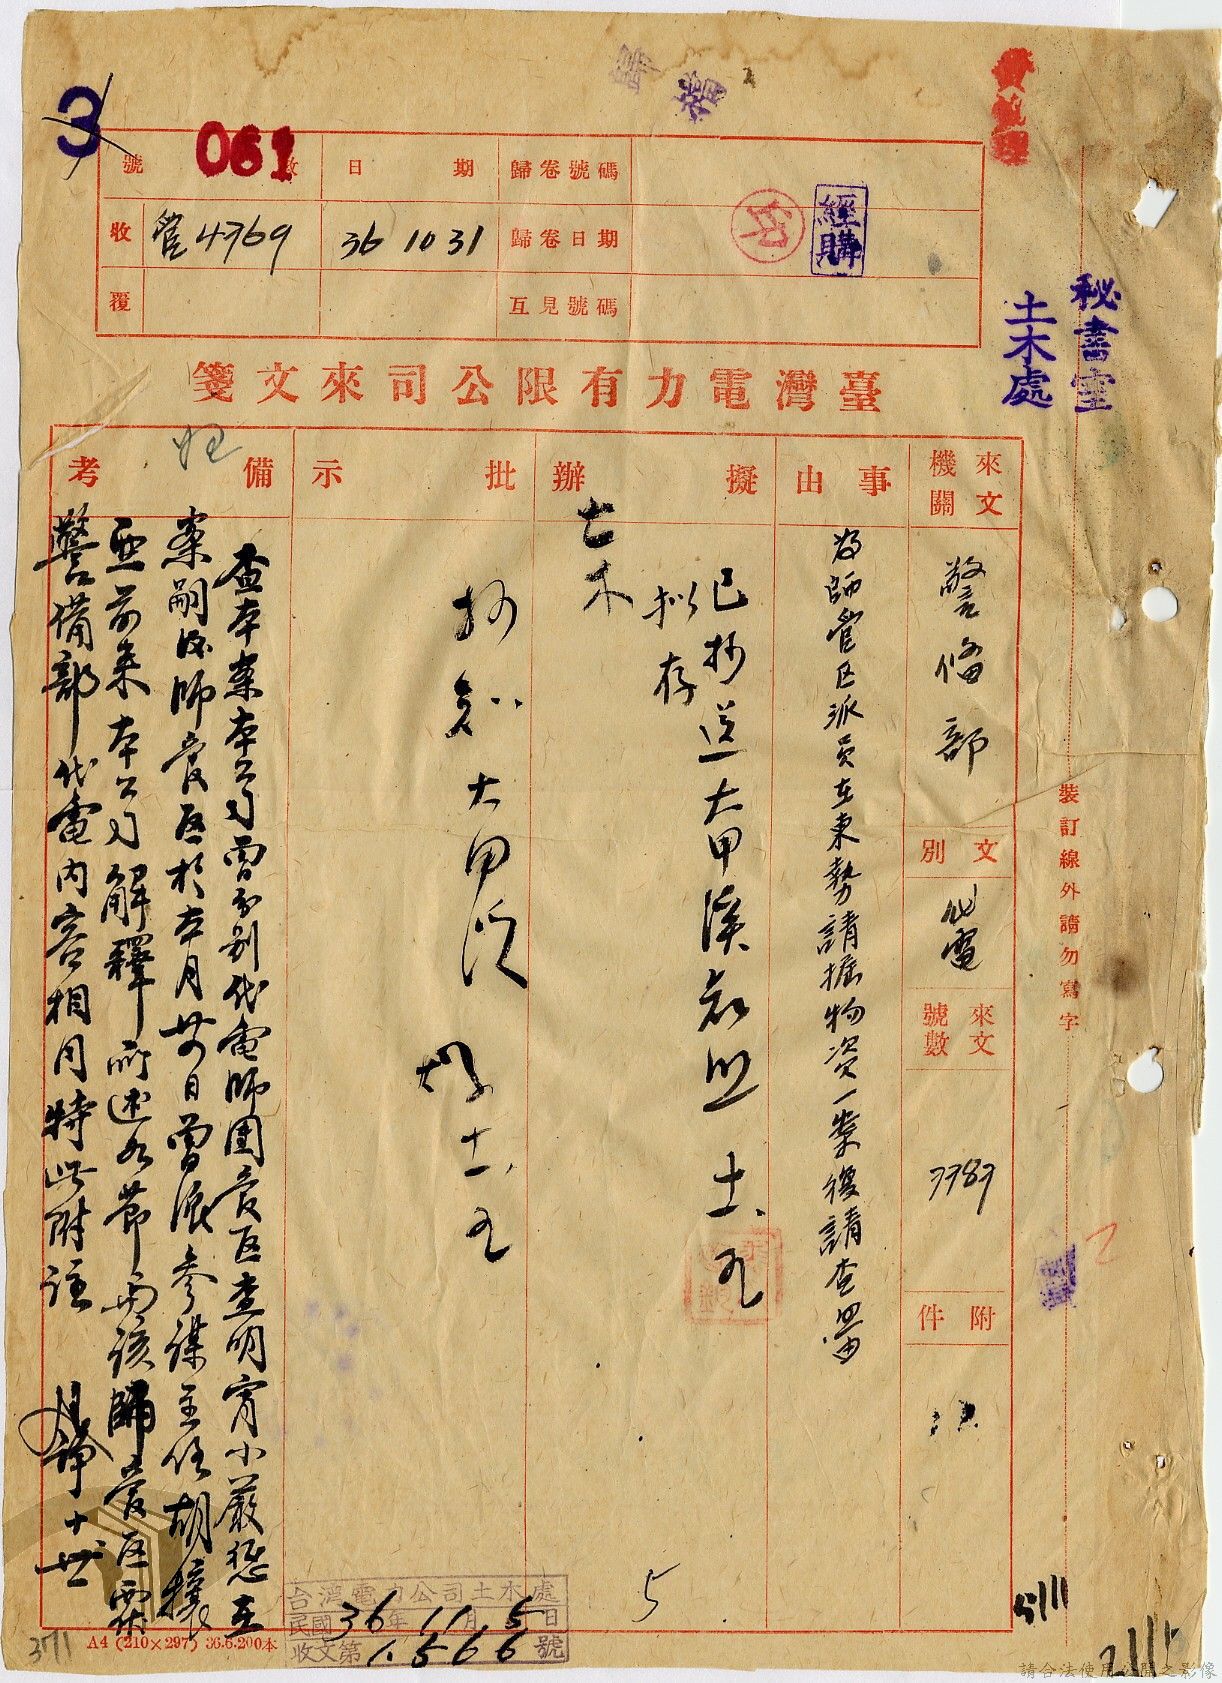 歸檔
3
061
號數
日期
歸卷號碼
收
管4769
36 10 31
歸卷日期
覆
互見號碼
印
經購
秘書室
土木處
臺灣電力有限公司來文箋
來文機關
警備部
文別
代電
來文號數
7787
附件
事由
為師管區派員在東勢請掘物資一案復請查照由
擬辦
土木
已抄送大甲溪
擬存
批示
抄知大甲溪
備考
查本案本公司曾分別代電師團管區查明宵小嚴懲在
案嗣後師管區於本月廿日曾派參謀主任胡
前來本公司解釋所述各節與該師管區
警備部代電內容相同特此附註
裝訂線外請勿寫字
台灣電力公司土木處
民國36年11月5日
收文第1566號
5
5/11
A4 (210×297) 36.6.200本
請合法使用公開之影像